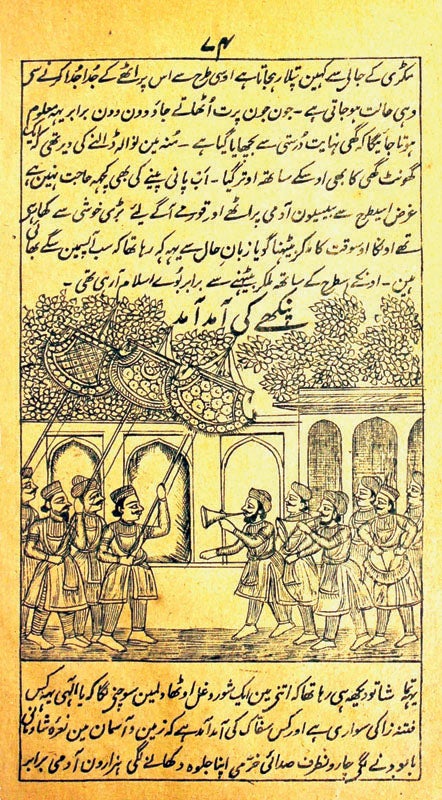 ۷۴
مکڑی کے جالی سے کہین پتلا رہجاتا ہے اوسی طرح سے اس پراٹھے کے جدا جدا کرنے سی
وہی حالت ہو جاتی ہے ۔ جون جون پرت اُٹھاتے جاؤ وون وون برابر یہہ معلوم
ہوتا جائیگا کہ گھی نہایت درستی سے بچھایا گیا ہے ۔ منہ مین نوالہ ڈالنے کی دیر تھی کہ ایک
گھونٹ گھی کا بھی اوسکے ساتھہ اوتر گیا ۔ اب پانی پینے کی بھی کچہہ حاجت نہین ہے
غرض اسیطرح سے بیسیون آدمی پراٹھے اور قورمے آگے لیے بڑی خوشی سے کھا رہے
تھے اونکا اوسوقت کا ملکر بیٹھنا گویا زبانِ حال سے یہہ کہہ رہا تھا کہ سب آپسمین سگے بھائی
ہین ۔ اونکے اسطرح کے ساتھہ ملکر بیٹھنے سے برابر بوے اسلام آ رہی تھی ۔
پنکھے کی آمد آمد
یہہ تماشا تو دیکھہ ہی رہا تھا کہ اتنے مین ایک شور و غل اوٹھا دلمین سوچنے لگا کہ یا الٰہی یہہ کس
فتنہ زا کی سواری ہے اور کس سفاک کی آمد آمد ہے کہ زمین و آسمان مین نعرہ شادمانی
بلند ہونے لگے چارونطرف صدائی خرّمی اپنا جلوہ دکھانے لگی ہزارون آدمی برابر